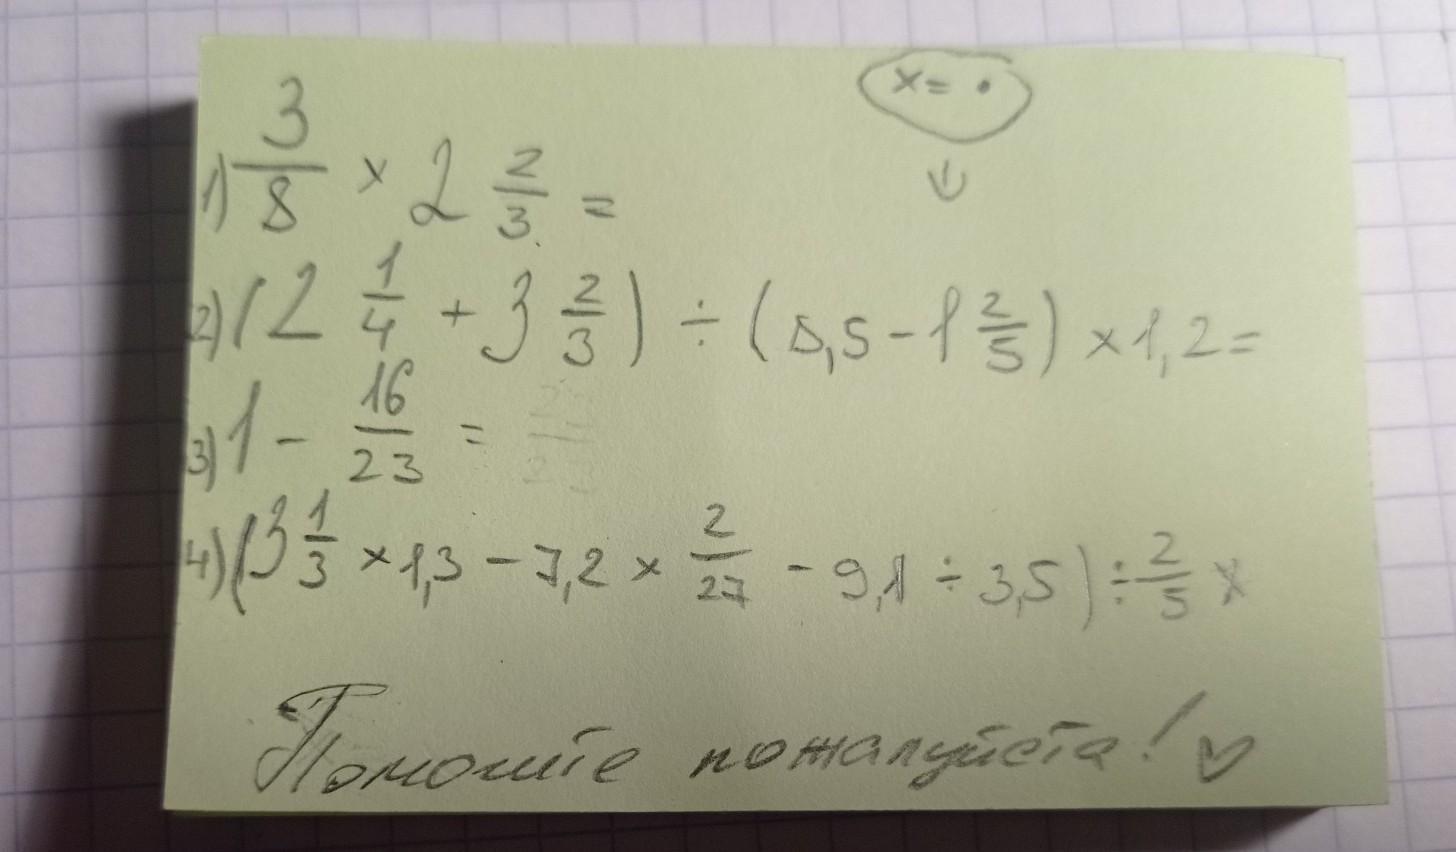 x = •
1) 3/8 × 2 2/3 =
2) (2 1/4 + 3 2/3) ÷ (5,5 - 1 2/5) × 1,2 =
3) 1 - 16/23 =
4) (3 1/3 × 1,3 - 7,2 × 2/27 - 9,1 ÷ 3,5) ÷ 2/5 ×
Помогите пожалуйста!